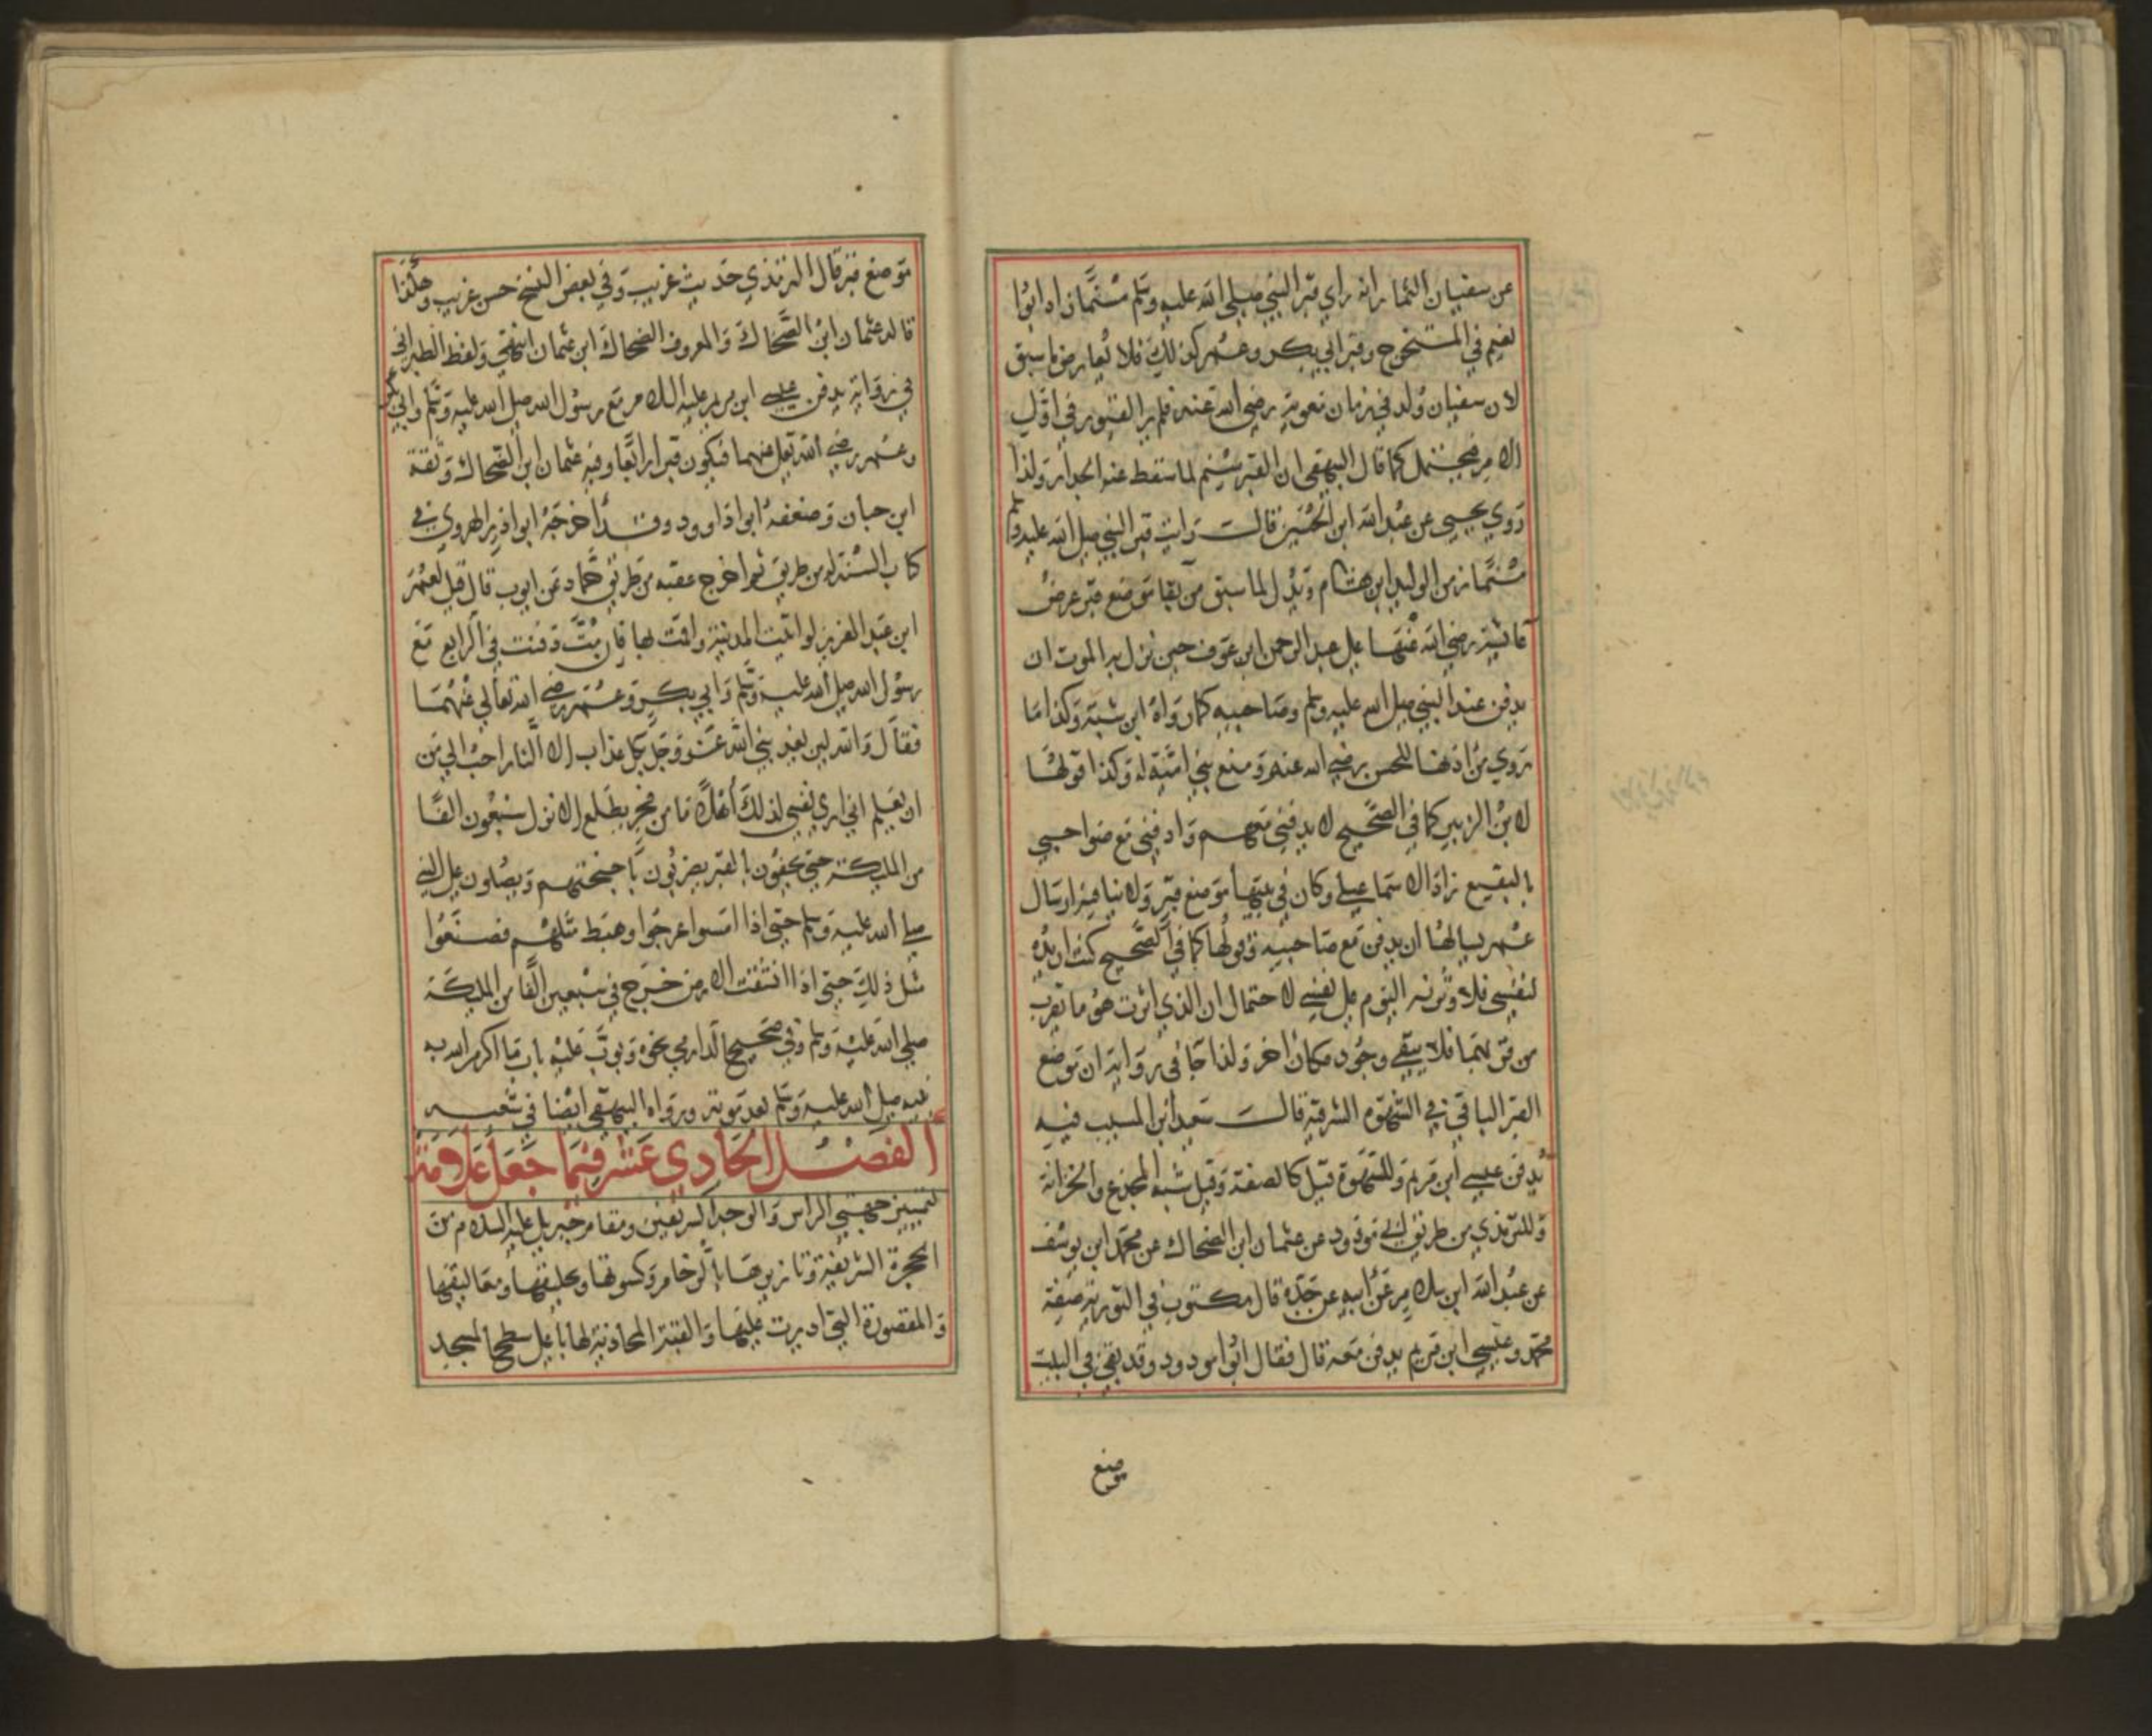 عن سفيان التمار انه راي قبر النبي صلي الله عليه وسلم مسنما زاد ابوا
نعيم في المستخرج وقبر ابي بكر وعمر كذلك فلا يعارض ما سبق
لان سفيان ولد في زمان معوية رضي الله عنه فلم ير القبور في اول
الامر فيحتمل كما قال البيهقي ان القبر سنم لما سقط عنه الجدار ولذا
روي يحيي عن عبد الله ابن الحسين قال رايت قبر النبي صلي الله عليه وسلم
مسنما زمن الوليد ابن هشام ويدل لما سبق من بقا موضع قبر عرض
عائشة رضي الله عنها علي عبد الرحمن ابن عوف حين نزل به الموت ان
يدفن عند النبي صلي الله عليه وسلم وصاحبيه كما رواه ابن شبة وكذا ما
روي من اذنها للحسن رضي الله عنه ومنع بني امية له وكذا قولها
لابن الزبير كما في الصحيح لا يدفني معهم وادفني مع صواحبي
بالبقيع زاد الاسماعيلي وكان في بيتها موضع قبر ولا ينافيه ارسال
عمر يسالها ان يدفن مع صاحبيه وقولها كما في الصحيح كنت اريده
لنفسي فلاوثرنه اليوم علي نفسي لاحتمال ان الذي اثرت هو ما يقرب
من قبريهما فلا ينفي وجود مكان اخر ولذا جا في رواية ان موضع
القبر الباقي في السهوة الشرقية قال سعيد ابن المسيب فيه
يدفن عيسي ابن مريم وللسهوة قيل كالصفة وقيل شبه المخدع والخزانة
وللترمذي من طريق ابي مودود عن عثمان ابن الضحاك عن محمد ابن يوسف
عن عبد الله ابن سلام عن ابيه عن جده قال مكتوب في التورية صفة
محمد وعيسي ابن مريم يدفن معه قال فقال ابوا مودود وقد بقي في البيت
موضع
موضع قبر قال الترمذي حديث غريب وفي بعض النسخ حسن غريب وهكذا
قال عثمان ابن الضحاك والمعروف الضحاك ابن عثمان انتهي ولفظ الطبراني
في رواية يدفن عيسي ابن مريم عليه السلام مع رسول الله صلي الله عليه وسلم وابي بكر
وعمر رضي الله تعلي عنهما فيكون قبرا رابعا وفيه عثمان ابن الضحاك وثقه
ابن حبان وضعفه ابوا داوود وقد اخرجه ابوا ذر الهروي في
كتاب السنة له من طريق ثم اخرج عقبه من طريق حماد عن ايوب قال قيل لعمر
ابن عبد العزيز لو اتيت المدينة واقمت بها فان مت دفنت في الرابع مع
رسول الله صلي الله عليه وسلم وابي بكر وعمر رضي الله تعالي عنهما
فقال والله لين يعذبني الله عز وجل بكل عذاب الا النار احب الي من
ان يعلم اني اري نفسي لذلك اهلا ما من فجر يطلع الا نزل سبعون الفا
من الملئكة حتي يحفون بالقبر يضربون باجنحتهم ويصلون علي النبي
صلي الله عليه وسلم حتي اذا امسوا عرجوا وهبط مثلهم فصنعوا
مثل ذلك حتي اذا انشقت الارض خرج في سبعين الفا من الملئكة
صلي الله عليه وسلم وفي صحيح الدارمي نحوه وبوب عليه باب ما اكرم الله به
نبيه صلي الله عليه وسلم بعد موته ورواه البيهقي ايضا في شعبه
الفصل الحادي عشر فيما جعل علامة
لتمييز جهتي الراس والوجه الشريفين ومقام جبريل عليه السلام من
الحجرة الشريفة وتازيرها بالرخام وكسوتها وتخليقها ومعاليقها
والمقصورة التي اديرت عليها والقبة المحاذية لها باعلي سطح المسجد